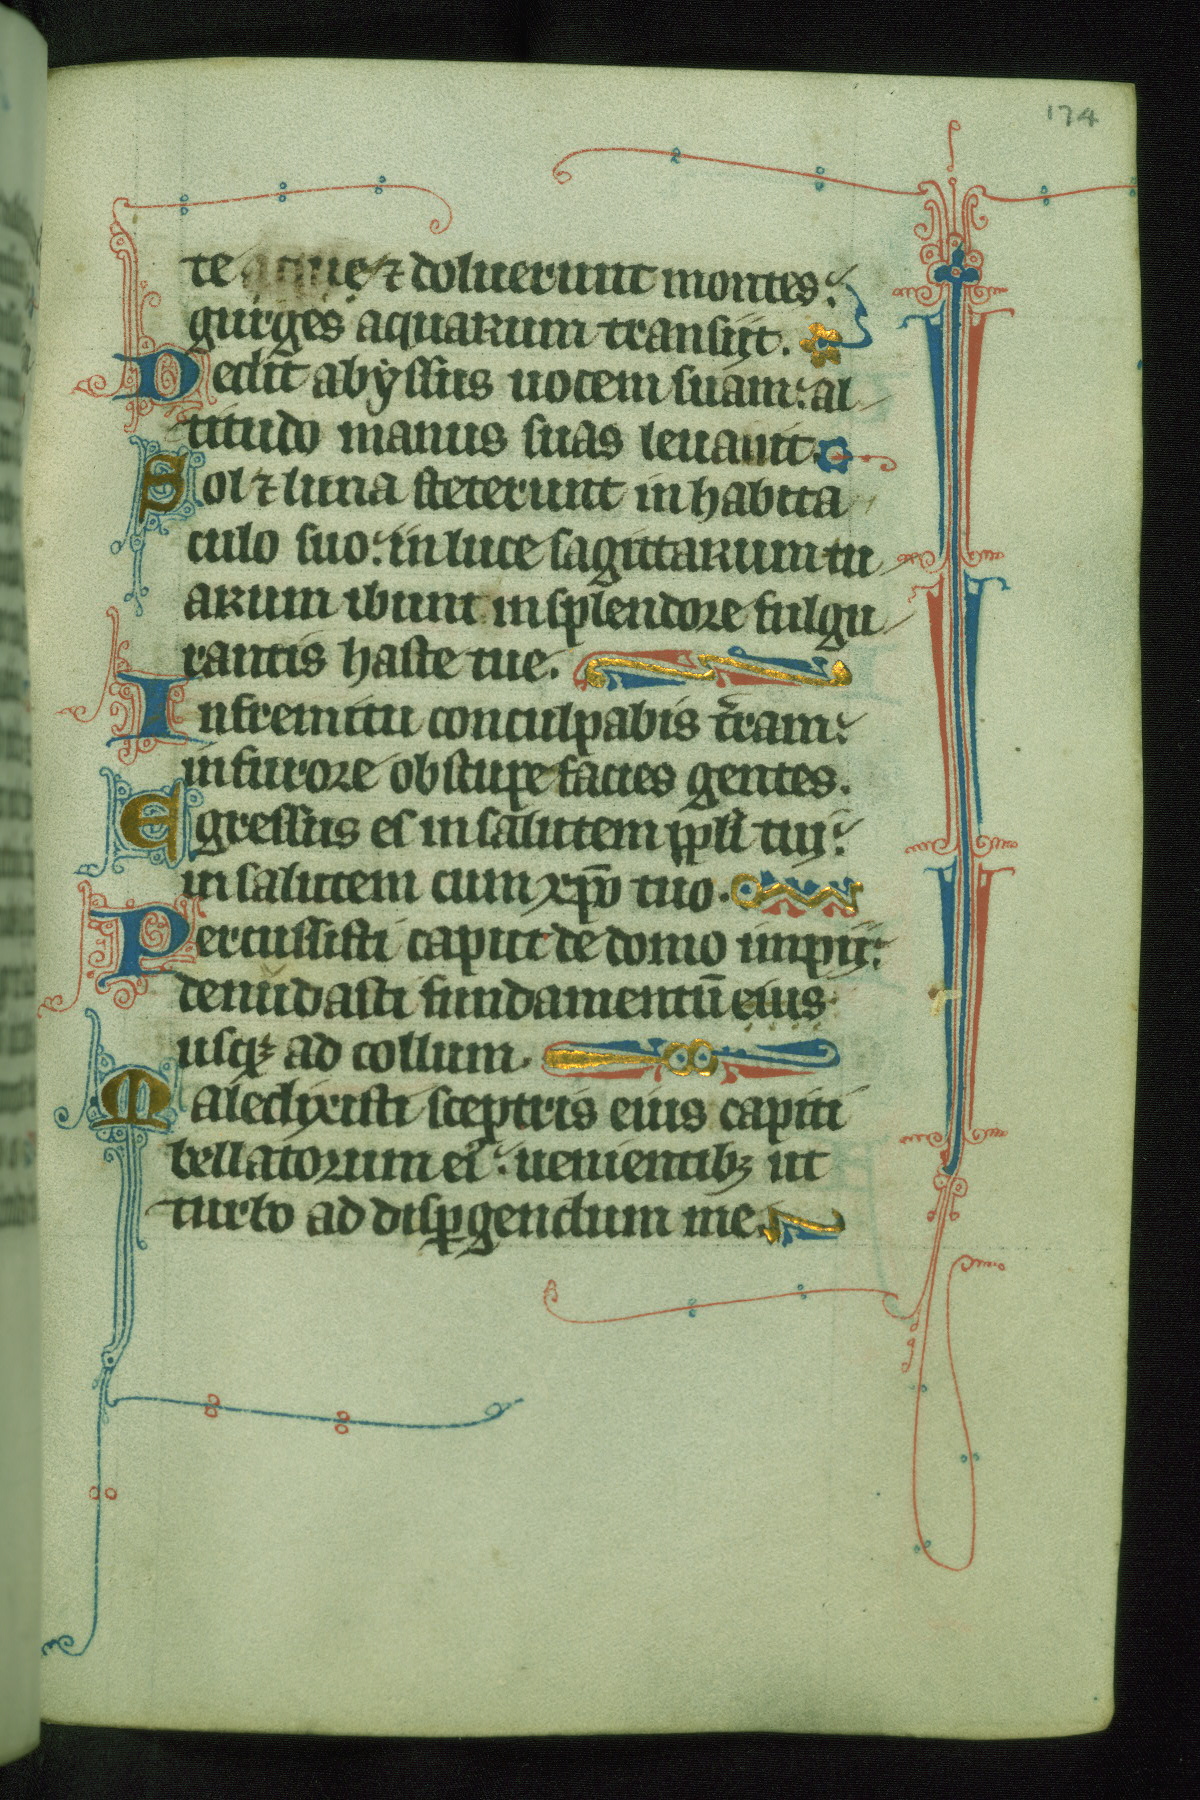 174
te aque ⁊ doluerunt montes:
gurges aquarum transiit.
Dedit abyssus uocem suam: al
titudo manus suas leuauit.
Sol ⁊ luna steterunt in habita
culo suo: in luce sagittarum tu
arum ibunt in splendore fulgu
rantis haste tue.
In fremitu conculpabis t̄ram:
in furore obstupe facies gentes.
Egressus es in salutem ppl̄i tui:
in salutem cum xp̄o tuo.
Percussisti caput de domo impii:
denudasti fundamentū eius
usqꝫ ad collum.
Maledixisti sceptris eius capiti
bellatorum ei᷒: uenientibꝫ ut
turbo ad disꝑgendum me.